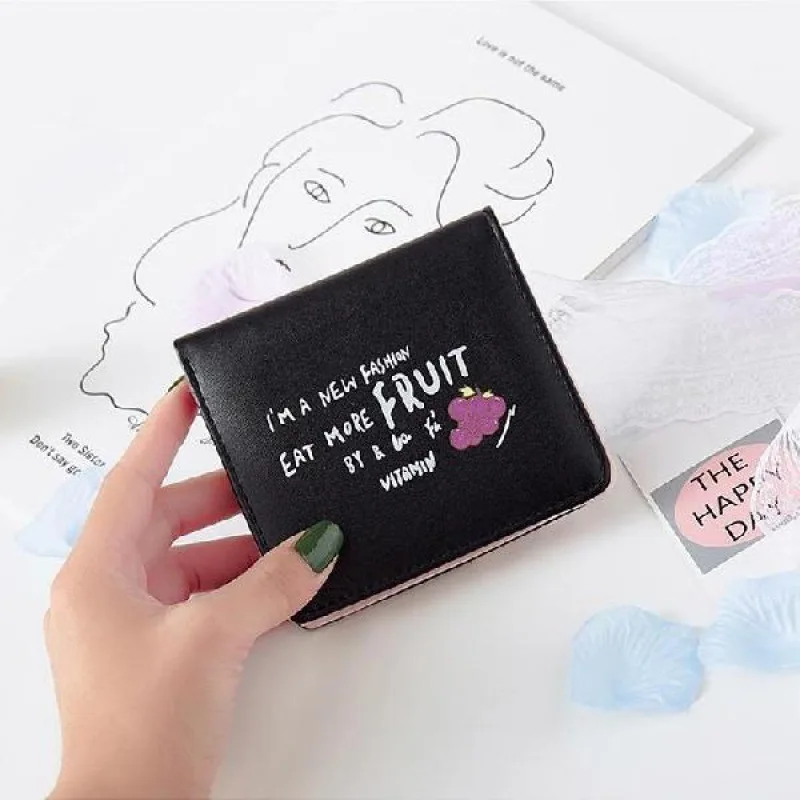 Love is not the same
I'M A NEW FASHION
EAT MORE FRUIT
BY &
VITAMIN
Two Sister
Don't say go
THE
HAPPY
DAY